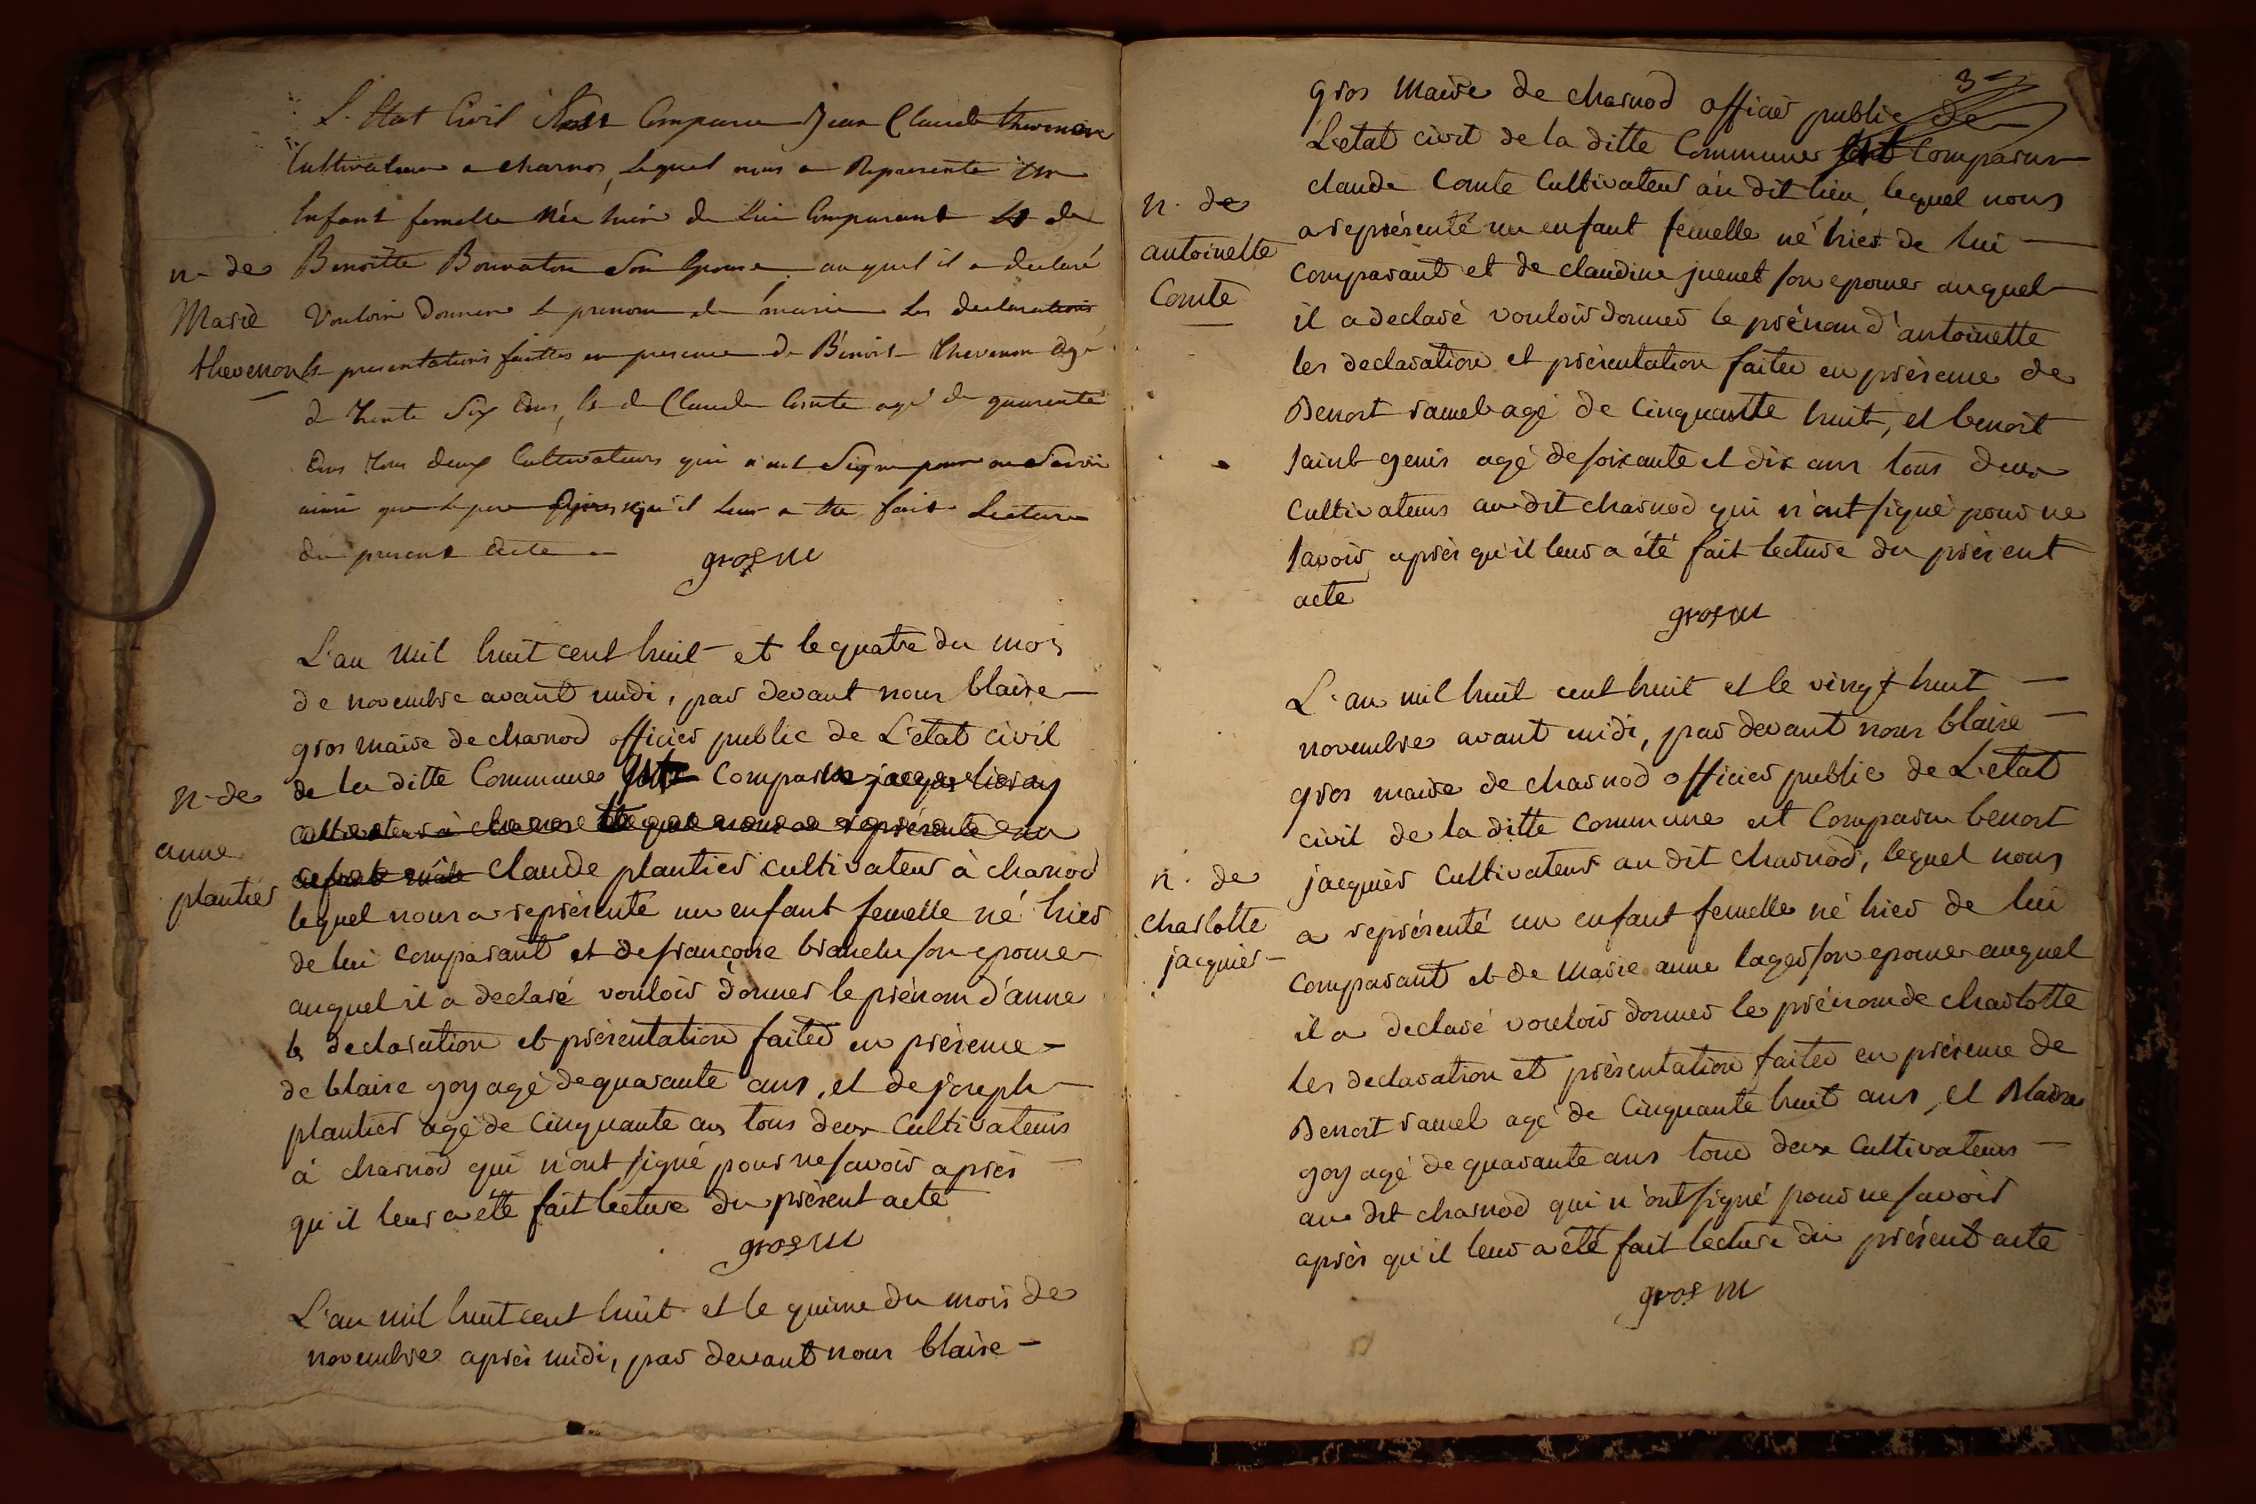 L'Etat Civil Est Comparu Jean Claude thevenon
Cultivateur a charnod, lequel nous a Représenté un
Enfant femelle née hier de Lui Comparant Et de
n. de
Marie
thevenon
Benoitte Bouvaton Son Epouse auquel il a declaré
Vouloir Donner le prenom de marie les declarations
Et presentations faittes en presence de Benoit thevenon agé
de trente Six ans, Et de Claude Comte agé de quarente
ans tous deux Cultivateurs qui n'ont Signé pour ne Savoir
ainsi que le pere après qu'il leur a été fait Lecture
du present acte
gros m
L'an mil huit cent huit et le quatre du mois
de novembre avant midi, par devant nous blaise
gros maire de charnod officier public de L'etat civil
de la ditte Commune est Comparu jacque
n. de
anne
plantier
cultivateur à lequel nous a représenté un
enfant mâle claude plantier cultivateur à charnod
lequel nous a représenté un enfant femelle né hier
de lui comparant et de françoise branche son epouse
auquel il a declaré vouloir donner le prénom d'anne
les declaration et présentation faites en présence
de blaise goy agé de quarante ans, et de joseph
plantier agé de cinquante ans tous deux cultivateurs
à charnod qui n'ont signé pour ne savoir après
qu'il leur a été fait lecture du présent acte
gros m
L'an mil huit cent huit et le quinze du mois de
novembre après midi, par devant nous blaise
3
gros maire de charnod officier public de
L'etat civil de la ditte Commune est Comparu
n. de
antoinette
Comte
claude Comte Cultivateur au dit lieu, lequel nous
a représenté un enfant femelle né hier de lui
comparant et de claudine juenet son epouse auquel
il a declaré vouloir donner le prénom d'antoinette
les declaration et présentation faites en présence de
Benoit ramel agé de cinquante huit, et benoit
saint genis agé de soixante et dix ans tous deux
cultivateurs au dit charnod qui n'ont signé pour ne
savoir, après qu'il leur a été fait lecture du présent
acte
gros m
L'an mil huit cent huit et le vingt huit
novembre avant midi, par devant nous blaise
gros maire de charnod officier public de L'etat
civil de la ditte commune est Comparu benoit
n. de
charlotte
jacquier
jacquier cultivateur au dit charnod, lequel nous
a représenté un enfant femelle né hier de lui
comparant et de Marie anne lager son epouse auquel
il a declaré vouloir donner le prénom de charlotte
les declaration et présentation faites en présence de
Benoit ramel agé de cinquante huit ans, et Blaise
goy agé de quarante ans tous deux cultivateurs
au dit charnod qui n'ont signé pour ne savoir
après qu'il leur a été fait lecture du présent acte
gros m